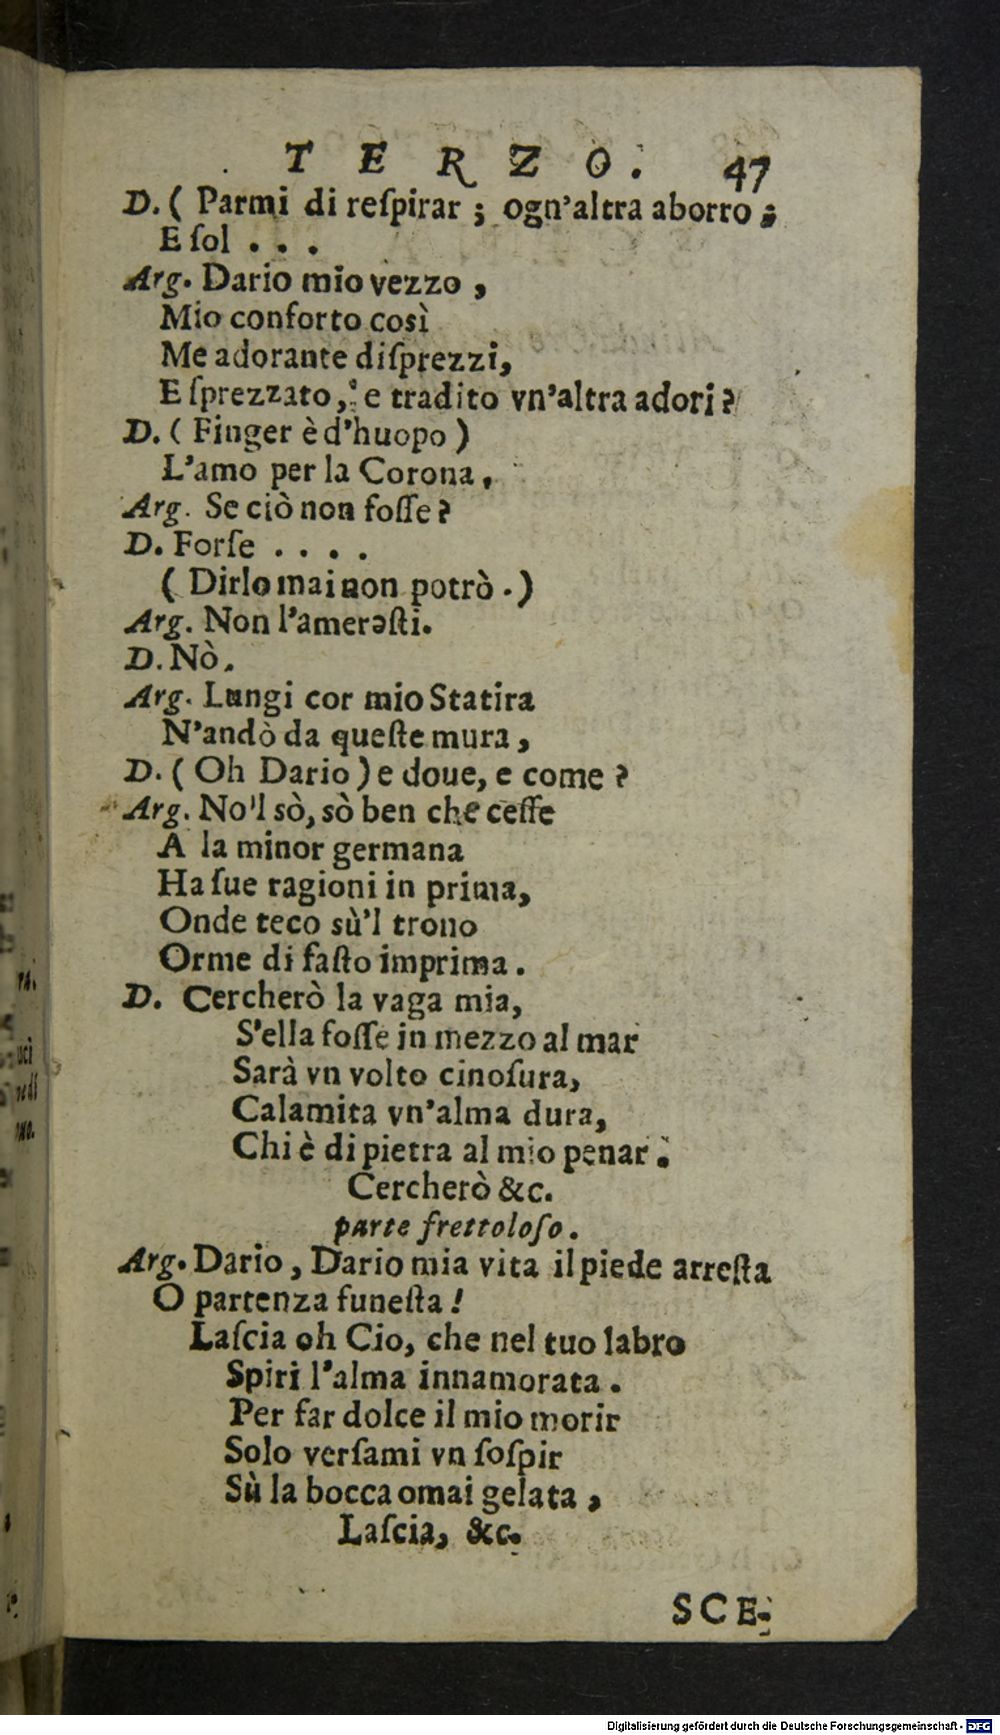 TERZO. 47
D. ( Parmi di reſpirar ; ogn'altra aborro ;
E ſol . . .
Arg. Dario mio vezzo ,
Mio conforto così
Me adorante diſprezzi,
E ſprezzato, e tradito vn'altra adori ?
D. ( Finger è d'huopo )
L'amo per la Corona,
Arg. Se ciò non foſſe ?
D. Forſe . . . .
( Dirlo mai non potrò . )
Arg. Non l'ameraſti.
D. Nò.
Arg. Lungi cor mio Statira
N'andò da queſte mura ,
D. ( Oh Dario ) e doue, e come ?
Arg. No'l sò, sò ben che ceſſe
A la minor germana
Ha ſue ragioni in prima,
Onde teco sù'l trono
Orme di faſto imprima .
D. Cercherò la vaga mia,
S'ella foſſe in mezzo al mar
Sarà vn volto cinoſura,
Calamita vn'alma dura,
Chi è di pietra al mio penar .
Cercherò &c.
parte frettoloſo .
Arg. Dario , Dario mia vita il piede arreſta
O partenza funeſta !
Laſcia oh Cio, che nel tuo labro
Spiri l'alma innamorata .
Per far dolce il mio morir
Solo verſami vn ſoſpir
Sù la bocca omai gelata ,
Laſcia, &c.
SCE-
ra.
uci
redi
mo.
Digitalisierung gefördert durch die Deutsche Forschungsgemeinschaft - DFG